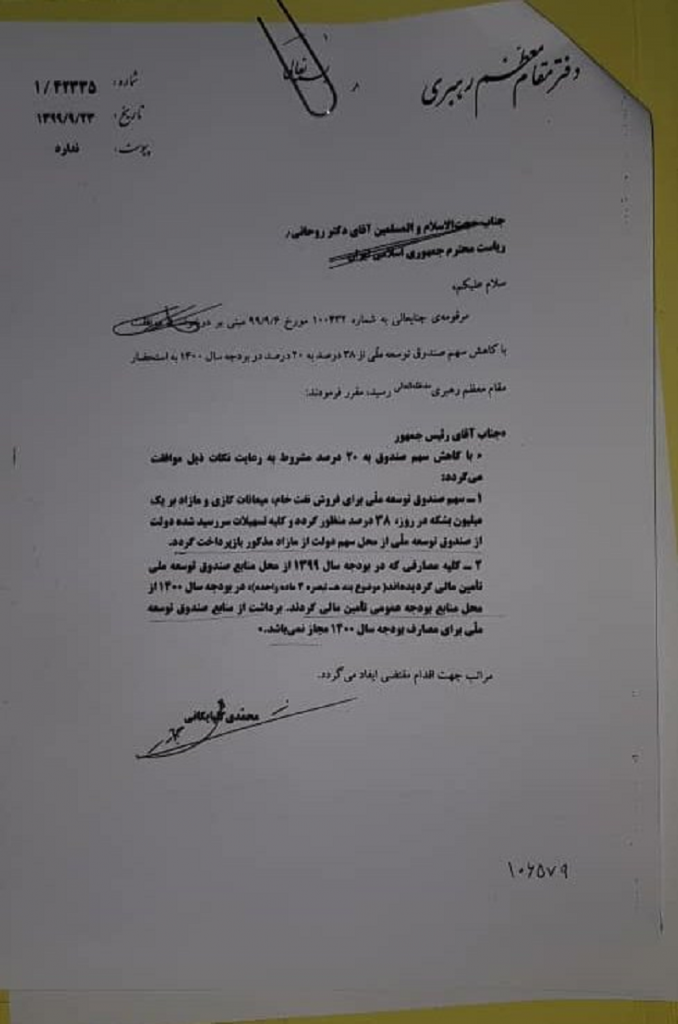 دفتر مقام معظم رهبری
شماره: ۱/۴۲۳۳۵
تاریخ: ۱۳۹۹/۹/۲۳
پیوست: ندارد
جناب حجت‌الاسلام و المسلمین آقای دکتر روحانی
ریاست محترم جمهوری اسلامی ایران
سلام علیکم،
مرقومه‌ی جنابعالی به شماره ۱۰۰۴۳۲ مورخ ۹۹/۹/۶ مبنی بر
با کاهش سهم صندوق توسعه ملّی از ۳۸ درصد به ۲۰ درصد در بودجه سال ۱۴۰۰ به استحضار
مقام معظم رهبری مدظله‌العالی رسید، مقرر فرمودند:
«جناب آقای رئیس جمهور
با کاهش سهم صندوق به ۲۰ درصد مشروط به رعایت نکات ذیل موافقت
می‌گردد:
۱ــ سهم صندوق توسعه ملّی برای فروش نفت خام، میعانات گازی و مازاد بر یک
میلیون بشکه در روز، ۳۸ درصد منظور گردد و کلیه تسهیلات سررسید شده دولت
از صندوق توسعه ملّی از محل سهم دولت از مازاد مذکور بازپرداخت گردد.
۲ ــ کلیه مصارفی که در بودجه سال ۱۳۹۹ از محل منابع صندوق توسعه ملی
تأمین مالی گردیده‌اند(موضوع بند هـ تبصره ۴ ماده واحده)، در بودجه سال ۱۴۰۰ از
محل منابع بودجه عمومی تأمین مالی گردند. برداشت از منابع صندوق توسعه
ملّی برای مصارف بودجه سال ۱۴۰۰ مجاز نمی‌باشد.»
مراتب جهت اقدام مقتضی ایفاد می‌گردد.
محمّدی گلپایگانی
۱۰۶۵۷۹